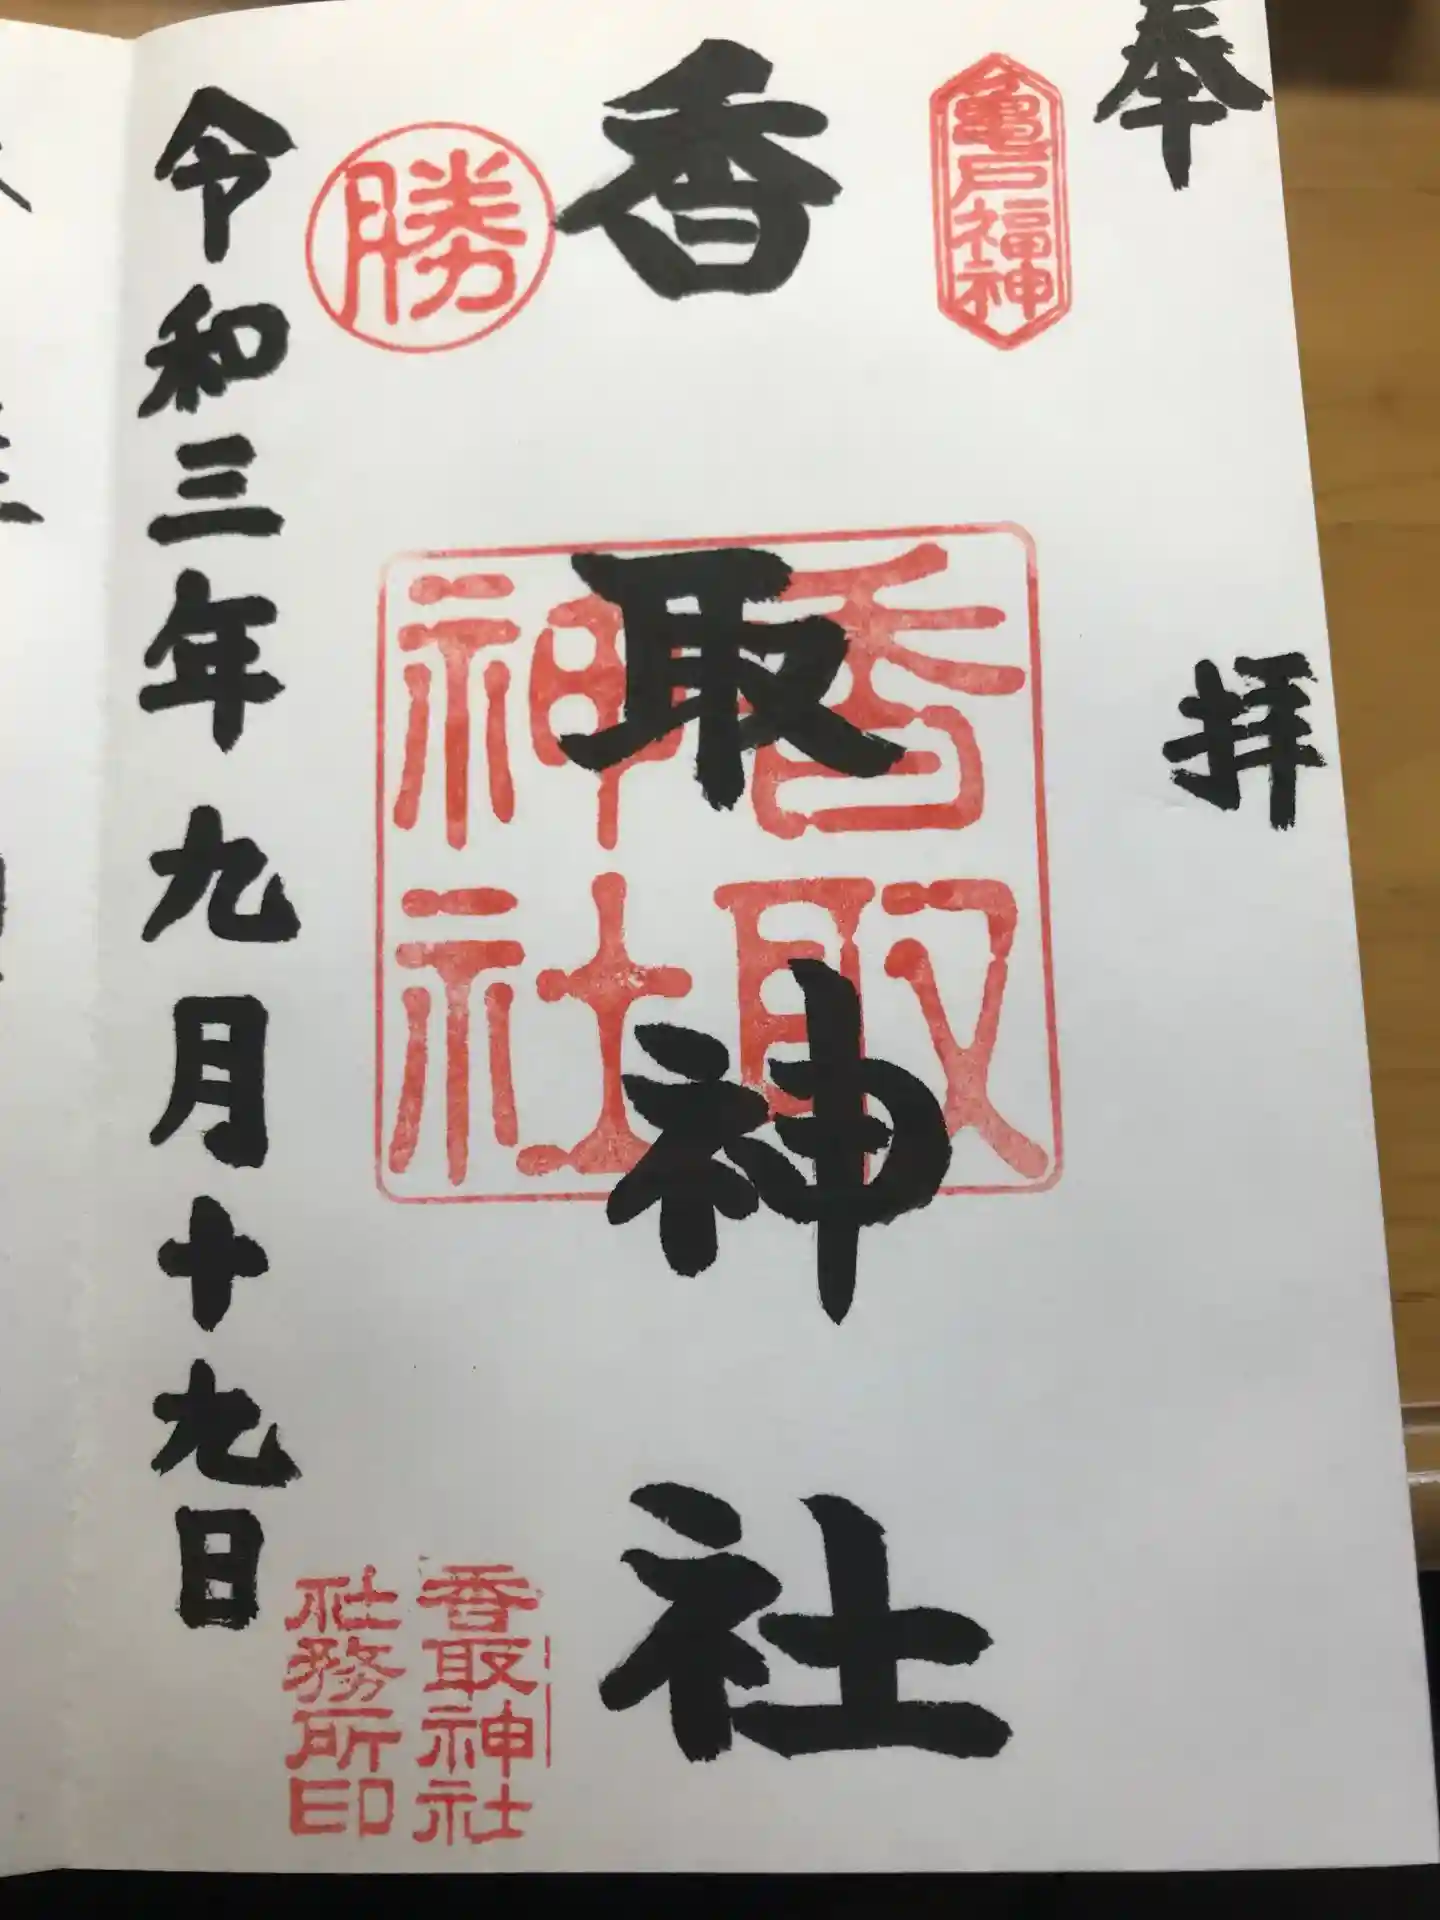 奉拝
亀戸福神
香取神社
香取
神社
勝
令和三年九月十九日
香取神社
社務所印